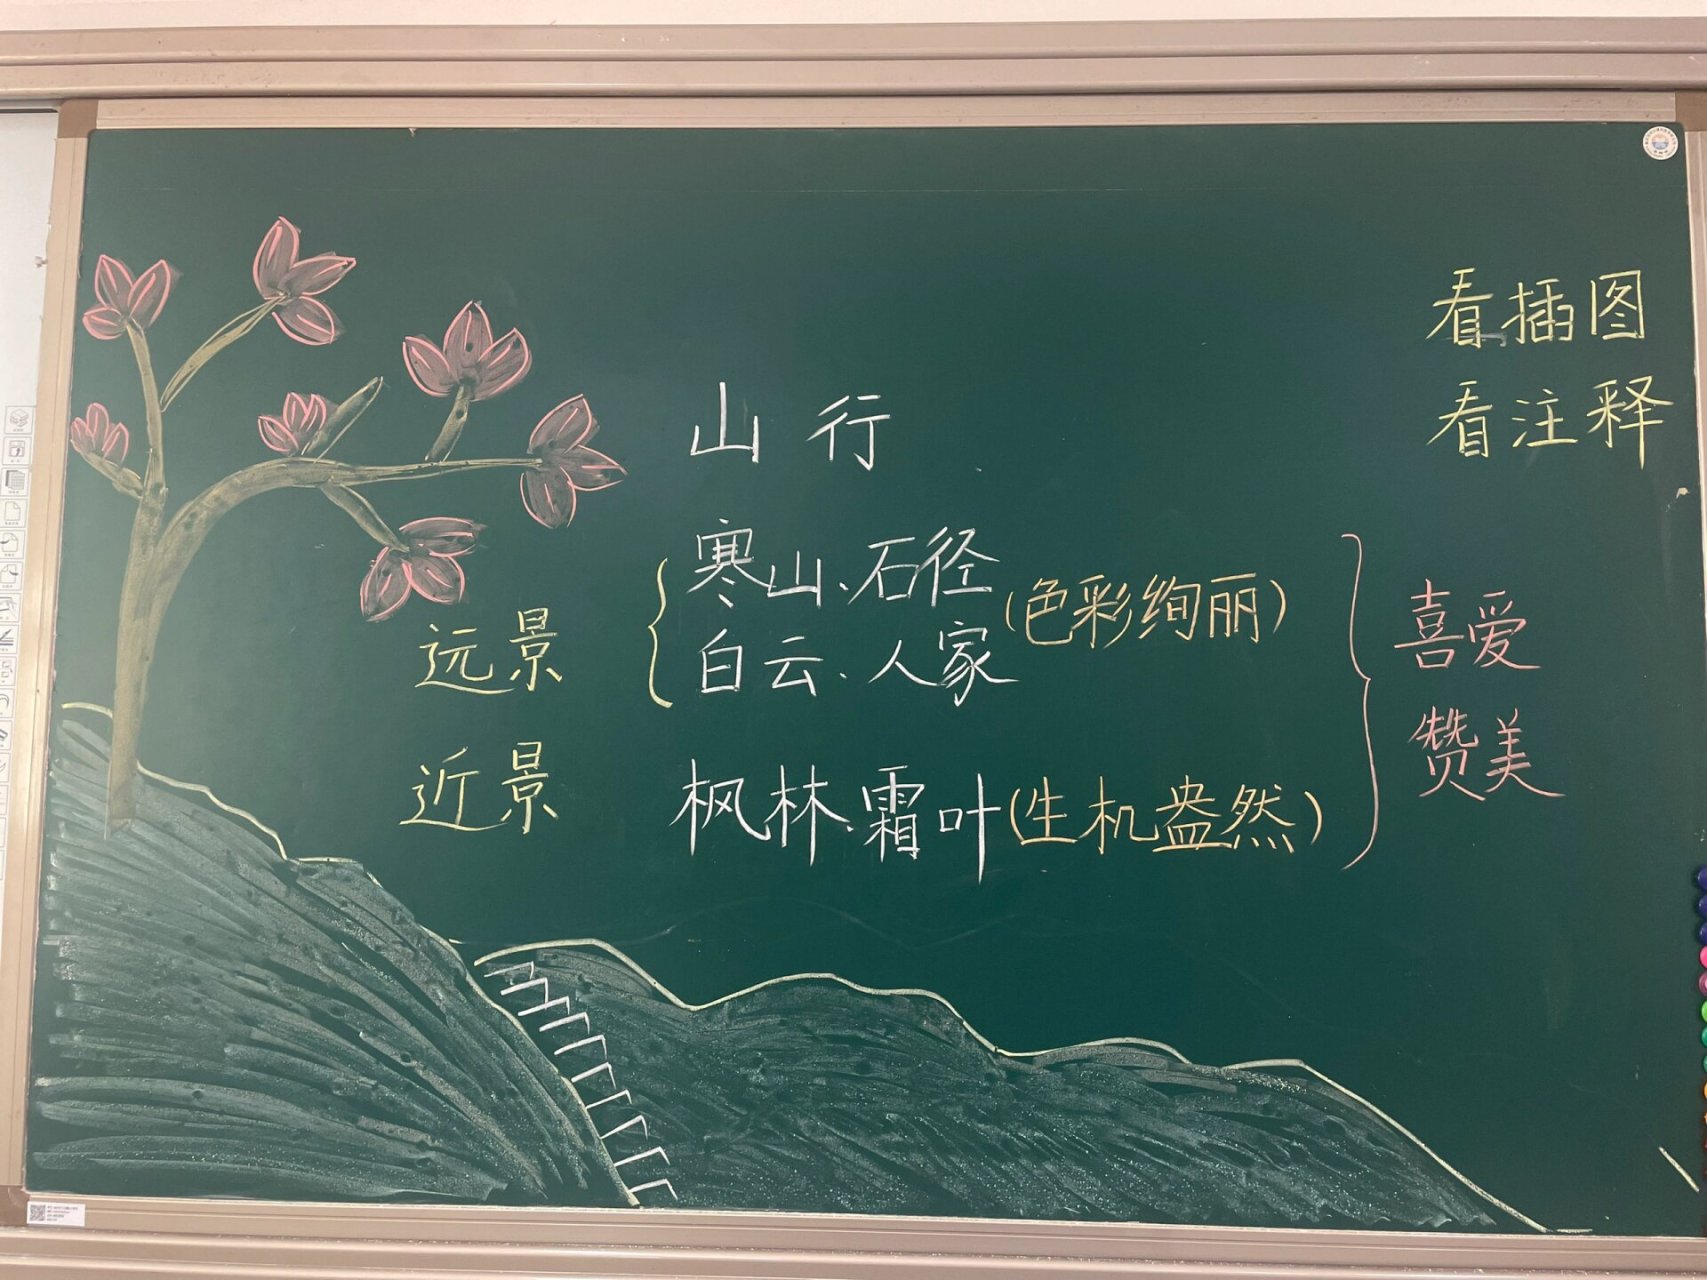 看插图
看注释
山行
远景
寒山、石径
白云、人家
(色彩绚丽)
近景
枫林、霜叶(生机盎然)
喜爱
赞美